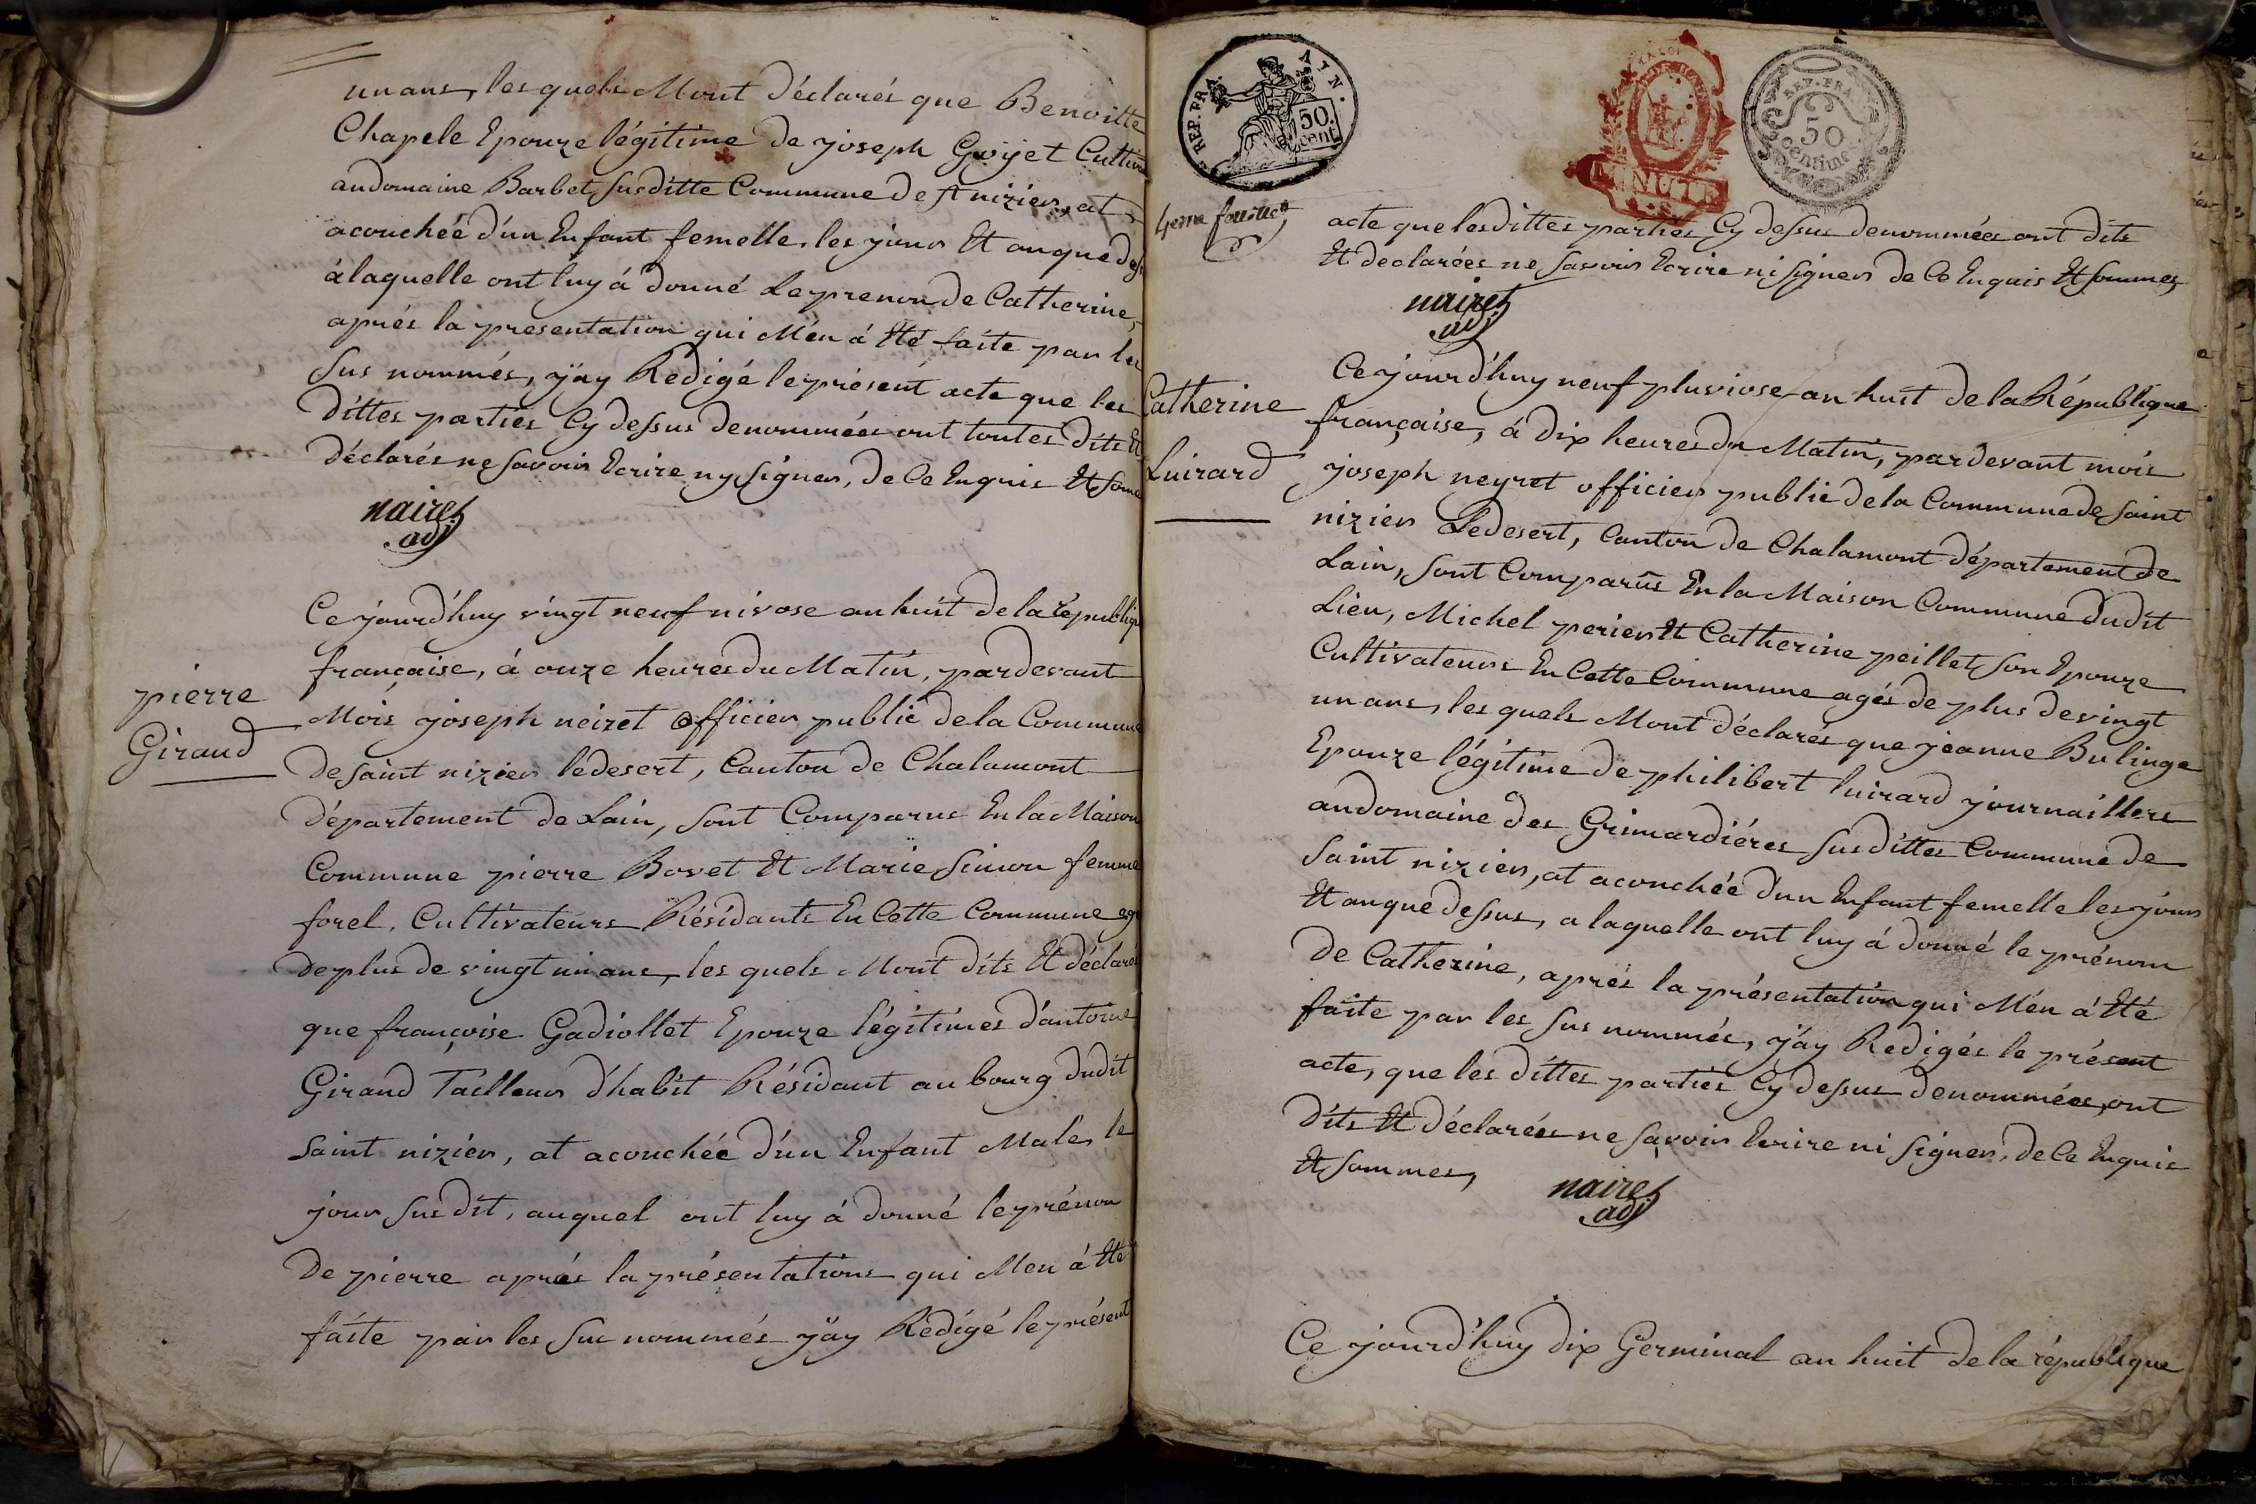 un ans, les quels Mont déclarés que Benoitte
Chapele Epouze légitime de joseph Goyet Cultiv
audomaine Barbet, susditte Commune de st nizier, at
acouchée d'un Enfant femelle, les jour Et an que dess
à laquelle ont luy á donné Le prenom de Catherine,
aprés la presentation qui Mén á Eté faite par les
sus nommés, j'ay Redigé le présent acte que les
dittes parties Cy dessus denommées ont toutes dits Et
déclarés ne savoir Ecrire ny signer, de Ce Enquis Et some
naires
adj
pierre
Giraud
Ce jourd'huy vingt neuf nivose an huit de la républiqu
française, á onze heures du Matin, pardevant
Mois joseph neiret officier public de la Commune
de saint nizier ledesert, Canton de Chalamont
département de Lain, sont Comparus En la Maison
Commune pierre Bovet Et Marie Simon femme
forel, Cultivateurs Résidants En Cette Commune agé
de plus de vingt un ans, les quels Mont dits Et déclarés
que françoise Gadiollet Epouze légitimes d'antoine
Giraud Tailleur d'habit Résidant au bourg dudit
saint nizier, at acouchée d'un Enfant Male, le
jour sus dit, auquel ont luy á donné le prénom
de pierre aprés la présentations qui Men á Eté
faite par les sus nommés j'ay Redigé le présent
REP. FRA. AIN.
50
cent.
REP. FRA.
50
Centimes
4eme feuillet
acte que les dittes parties Cy dessus denommées ont dits
Et declarées ne savoir Ecrire ni signer de Ce Enquis Et sommes
naires
adj
Catherine
Luirard
Ce jourd'huy neuf pluviose an huit de la République
française, á dix heures du Matin, pardevant mois
joseph neyret officier public de la Commune de saint
nizier Ledesert, Canton de Chalamont département de
Lain, sont Comparus En la Maison Commune dudit
Lieu, Michel perier Et Catherine peillet, son Epouze
Cultivateurs En Cette Commune agés de plus de vingt
un ans, les quels Mont déclarés que jeanne Bulinge
Epouze légitime de philibert luirard journailliers
audomaine des Grimardiéres susdittes Commune de
saint nizier, at acouchée d'un Enfant femelle les jours
Et an que dessus, a laquelle ont luy á donné le prénom
de Catherine, aprés la présentation qui Mén á Eté
faite par les sus nommés, j'ay Redigés le présent
acte, que les dittes parties Cy dessus denommées, ont
dits Et déclarées ne savoir Ecrire ni signer, de Ce Enquis
Et sommes,
naires
adj
Ce jourd'huy dix Germinal an huit de la république